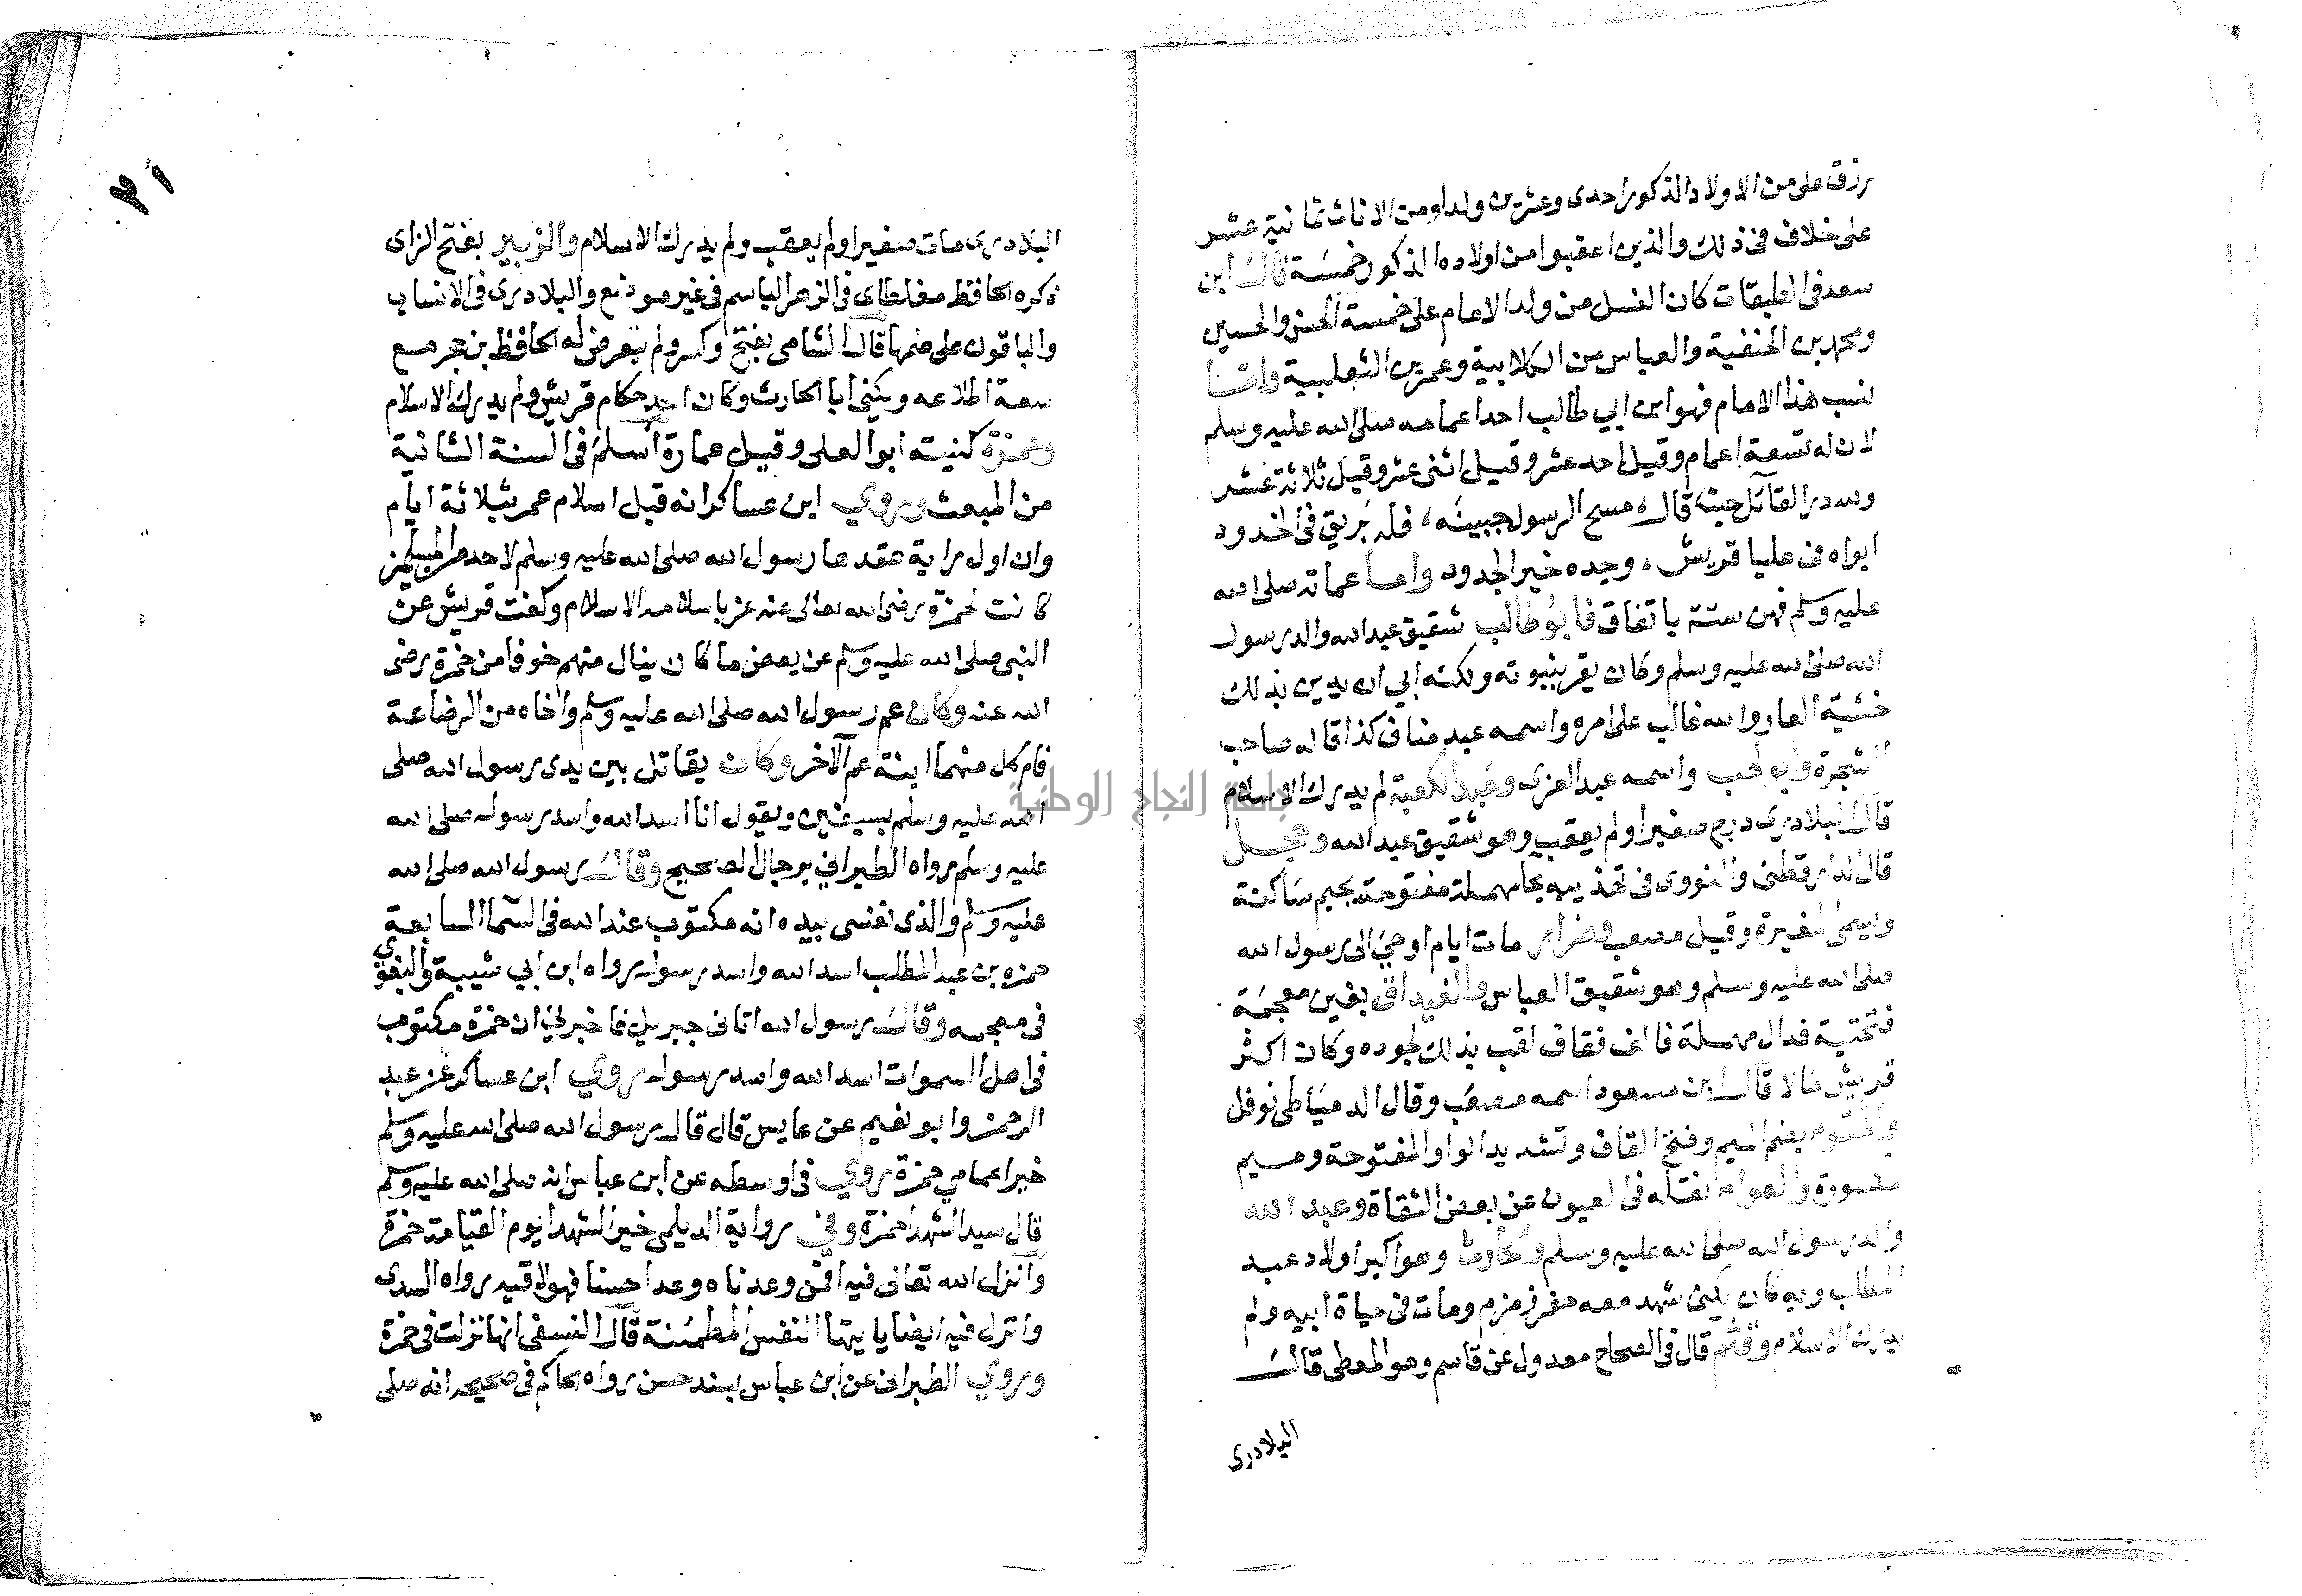 رزق على من الاولاد الذكور احدى وعشرين ولدا ومن الاناث ثمانية عشر
على خلاف فى ذلك والذين اعقبوا من اولاده الذكور خمسة قال ابن
سعد فى الطبقات كان النسل من ولد الامام على خمسة الحسن والحسين
ومحمد بن الحنفية والعباس من الكلابية وعمر بن الثعلبية واما
نسب هذا الامام فهو ابن ابي طالب احد اعمامه صلى الله عليه وسلم
لان له تسعة اعمام وقيل احد عشر وقيل اثنى عشر وقيل ثلاثة عشر
ولله در القائل حيث قال مسح الرسول جبينه فله بريق فى الخدود
ابواه فى عليا قريش وجده خير الجدود واما عماته صلى الله
عليه وسلم فهن ستة باتفاق فابو طالب شقيق عبد الله والد رسول
الله صلى الله عليه وسلم وكان يقر بنبوته ولكنه ابي ان يدين بذلك
خشية العار والله غالب على امره واسمه عبد مناف كذا قاله صاحب
الشجرة وابو لهب واسمه عبد العزى وعبد الكعبة لم يدرك الاسلام
قال البلادري درج صغيرا ولم يعقب وهو شقيق عبد الله وحجل
قال الدارقطنى والنووى فى تهذيبه بحا مهملة مفتوحة بجيم ساكنة
ويسمى المغيرة وقيل مصعب وضرار مات ايام اوحي الى رسول الله
صلى الله عليه وسلم وهو شقيق العباس والغيداق بغين معجمة
فتحتية فدال مهملة فالف فقاف لقب بذلك لجوده وكان اكثر
قريش مالا قال ابن مسعود اسمه مصعب وقال الدمياطى نوفل
والمقوم بضم الميم وفتح القاف وتشديد الواو المفتوحة وميم
والعوام نقله فى العيون عن بعض الثقاة وعبد الله
والد رسول الله صلى الله عليه وسلم والحارث وهو اكبر اولاد عبد
المطلب وبه كان يكنى شهد معه حفر زمزم ومات فى حياة ابيه ولم
يدرك الاسلام وقثم قال فى الصحاح معدول عن قاسم وهو المعطى قال
البلادرى
٣١
البلادرى مات صغيرا ولم يعقب ولم يدرك الاسلام والزبير بفتح الزاى
ذكره الحافظ مغلطاى فى الزهر الباسم فى غير موضع والبلادرى فى الانساب
والباقون على ضمها قال الشامى بفتح وكسر ولم يتعرض له الحافظ بن حجر مع
سعة اطلاعه ويكنى ابا الحارث وكان احد حكام قريش ولم يدرك الاسلام
وحمزة كنيته ابو العلى وقيل عمارة اسلم فى السنة الثانية
من المبعث وروي ابن عساكر انه قبل اسلام عمر بثلاثة ايام
وان اول راية عقدها رسول الله صلى الله عليه وسلم لاحد من المسلمين
كانت لحمزة رضى الله تعالى عنه عز باسلامه الاسلام وكفت قريش عن
النبى صلى الله عليه وسلم عن بعض ما كان ينال منهم خوفا من حمزة رضى
الله عنه وكان عم رسول الله صلى الله عليه وسلم واخاه من الرضاعة
فام كل منهما ابنة عم الآخر وكان يقاتل بين يدى رسول الله صلى
الله عليه وسلم بسيفين ويقول انا اسد الله واسد رسوله صلى الله
عليه وسلم رواه الطبراني برجال الصحيح وقال رسول الله صلى الله
عليه وسلم والذى نفسى بيده انه مكتوب عند الله فى السما السابعة
حمزه بن عبد المطلب اسد الله واسد رسوله رواه ابن ابي شيبة والبغوي
فى معجمه وقال رسول الله اتانى جبريل فاخبرني ان حمزة مكتوب
فى اهل السموات اسد الله واسد رسوله روي ابن عساكر عن عبد
الرحمن وابو نعيم عن عابس قال قال رسول الله صلى الله عليه وسلم
خير اعمامي حمزة روي فى اوسطه عن ابن عباس انه صلى الله عليه وسلم
قال سيد الشهدا حمزة وفي رواية الديلمى خير الشهدا يوم القيامة حمزة
وانزل الله تعالى فيه افمن وعدناه وعدا حسنا فهو لاقيه رواه السدى
وانزل فيه ايضا يايتها النفس المطمئنة قال النسفى انها نزلت فى حمزة
وروي الطبرانى عن ابن عباس بسند حسن رواه الحاكم فى صحيحه انه صلى
جامعة النجاح الوطنية